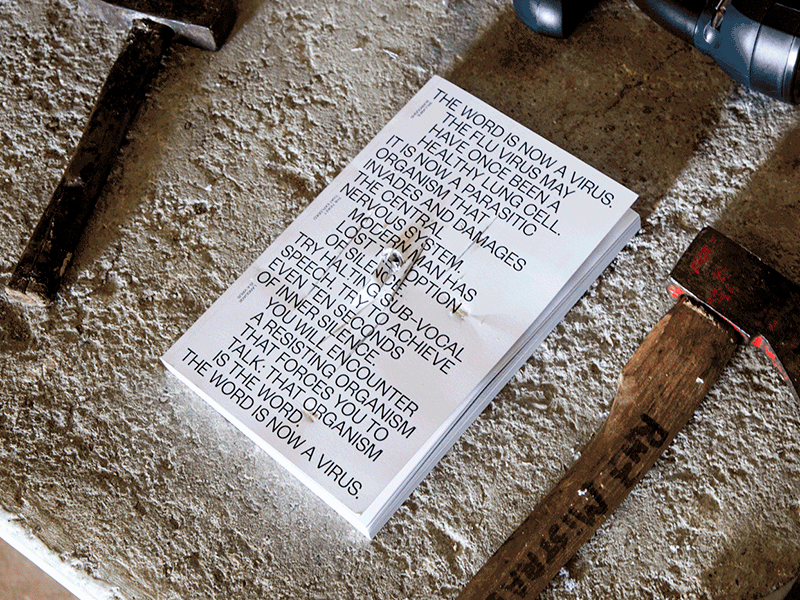 THE WORD IS NOW A VIRUS.
THE FLU VIRUS MAY
HAVE ONCE BEEN A
HEALTHY LUNG CELL.
IT IS NOW A PARASITIC
ORGANISM THAT
INVADES AND DAMAGES
THE CENTRAL
NERVOUS SYSTEM.
MODERN MAN HAS
LOST OPTION
OF
TRY HALTING SUB-VOCAL
SPEECH. TRY TO ACHIEVE
EVEN TEN SECONDS
OF INNER SILENCE.
YOU WILL ENCOUNTER
A RESISTING ORGANISM
THAT FORCES YOU TO
TALK. THAT ORGANISM
IS THE WORD.
THE WORD IS NOW A VIRUS.